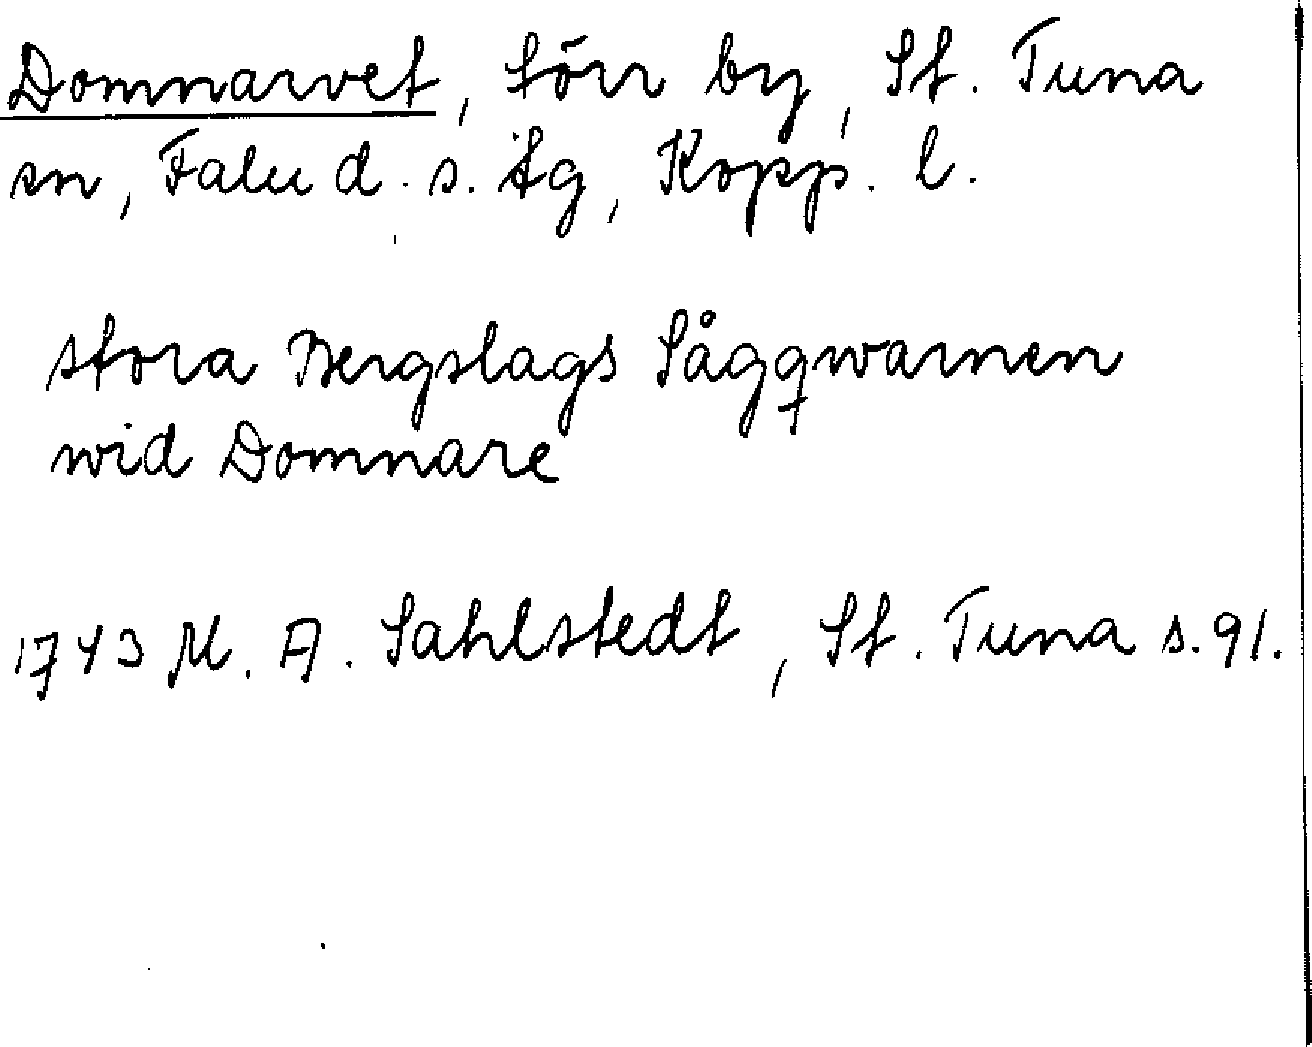 Domnarvet, förr by, St. Tuna
sn, Falu d. s. tg, Kopp. l.
stora Bergslags Sågqwarnen
wid Domnare
1743 M. A. Sahlstedt, St. Tuna s. 91.